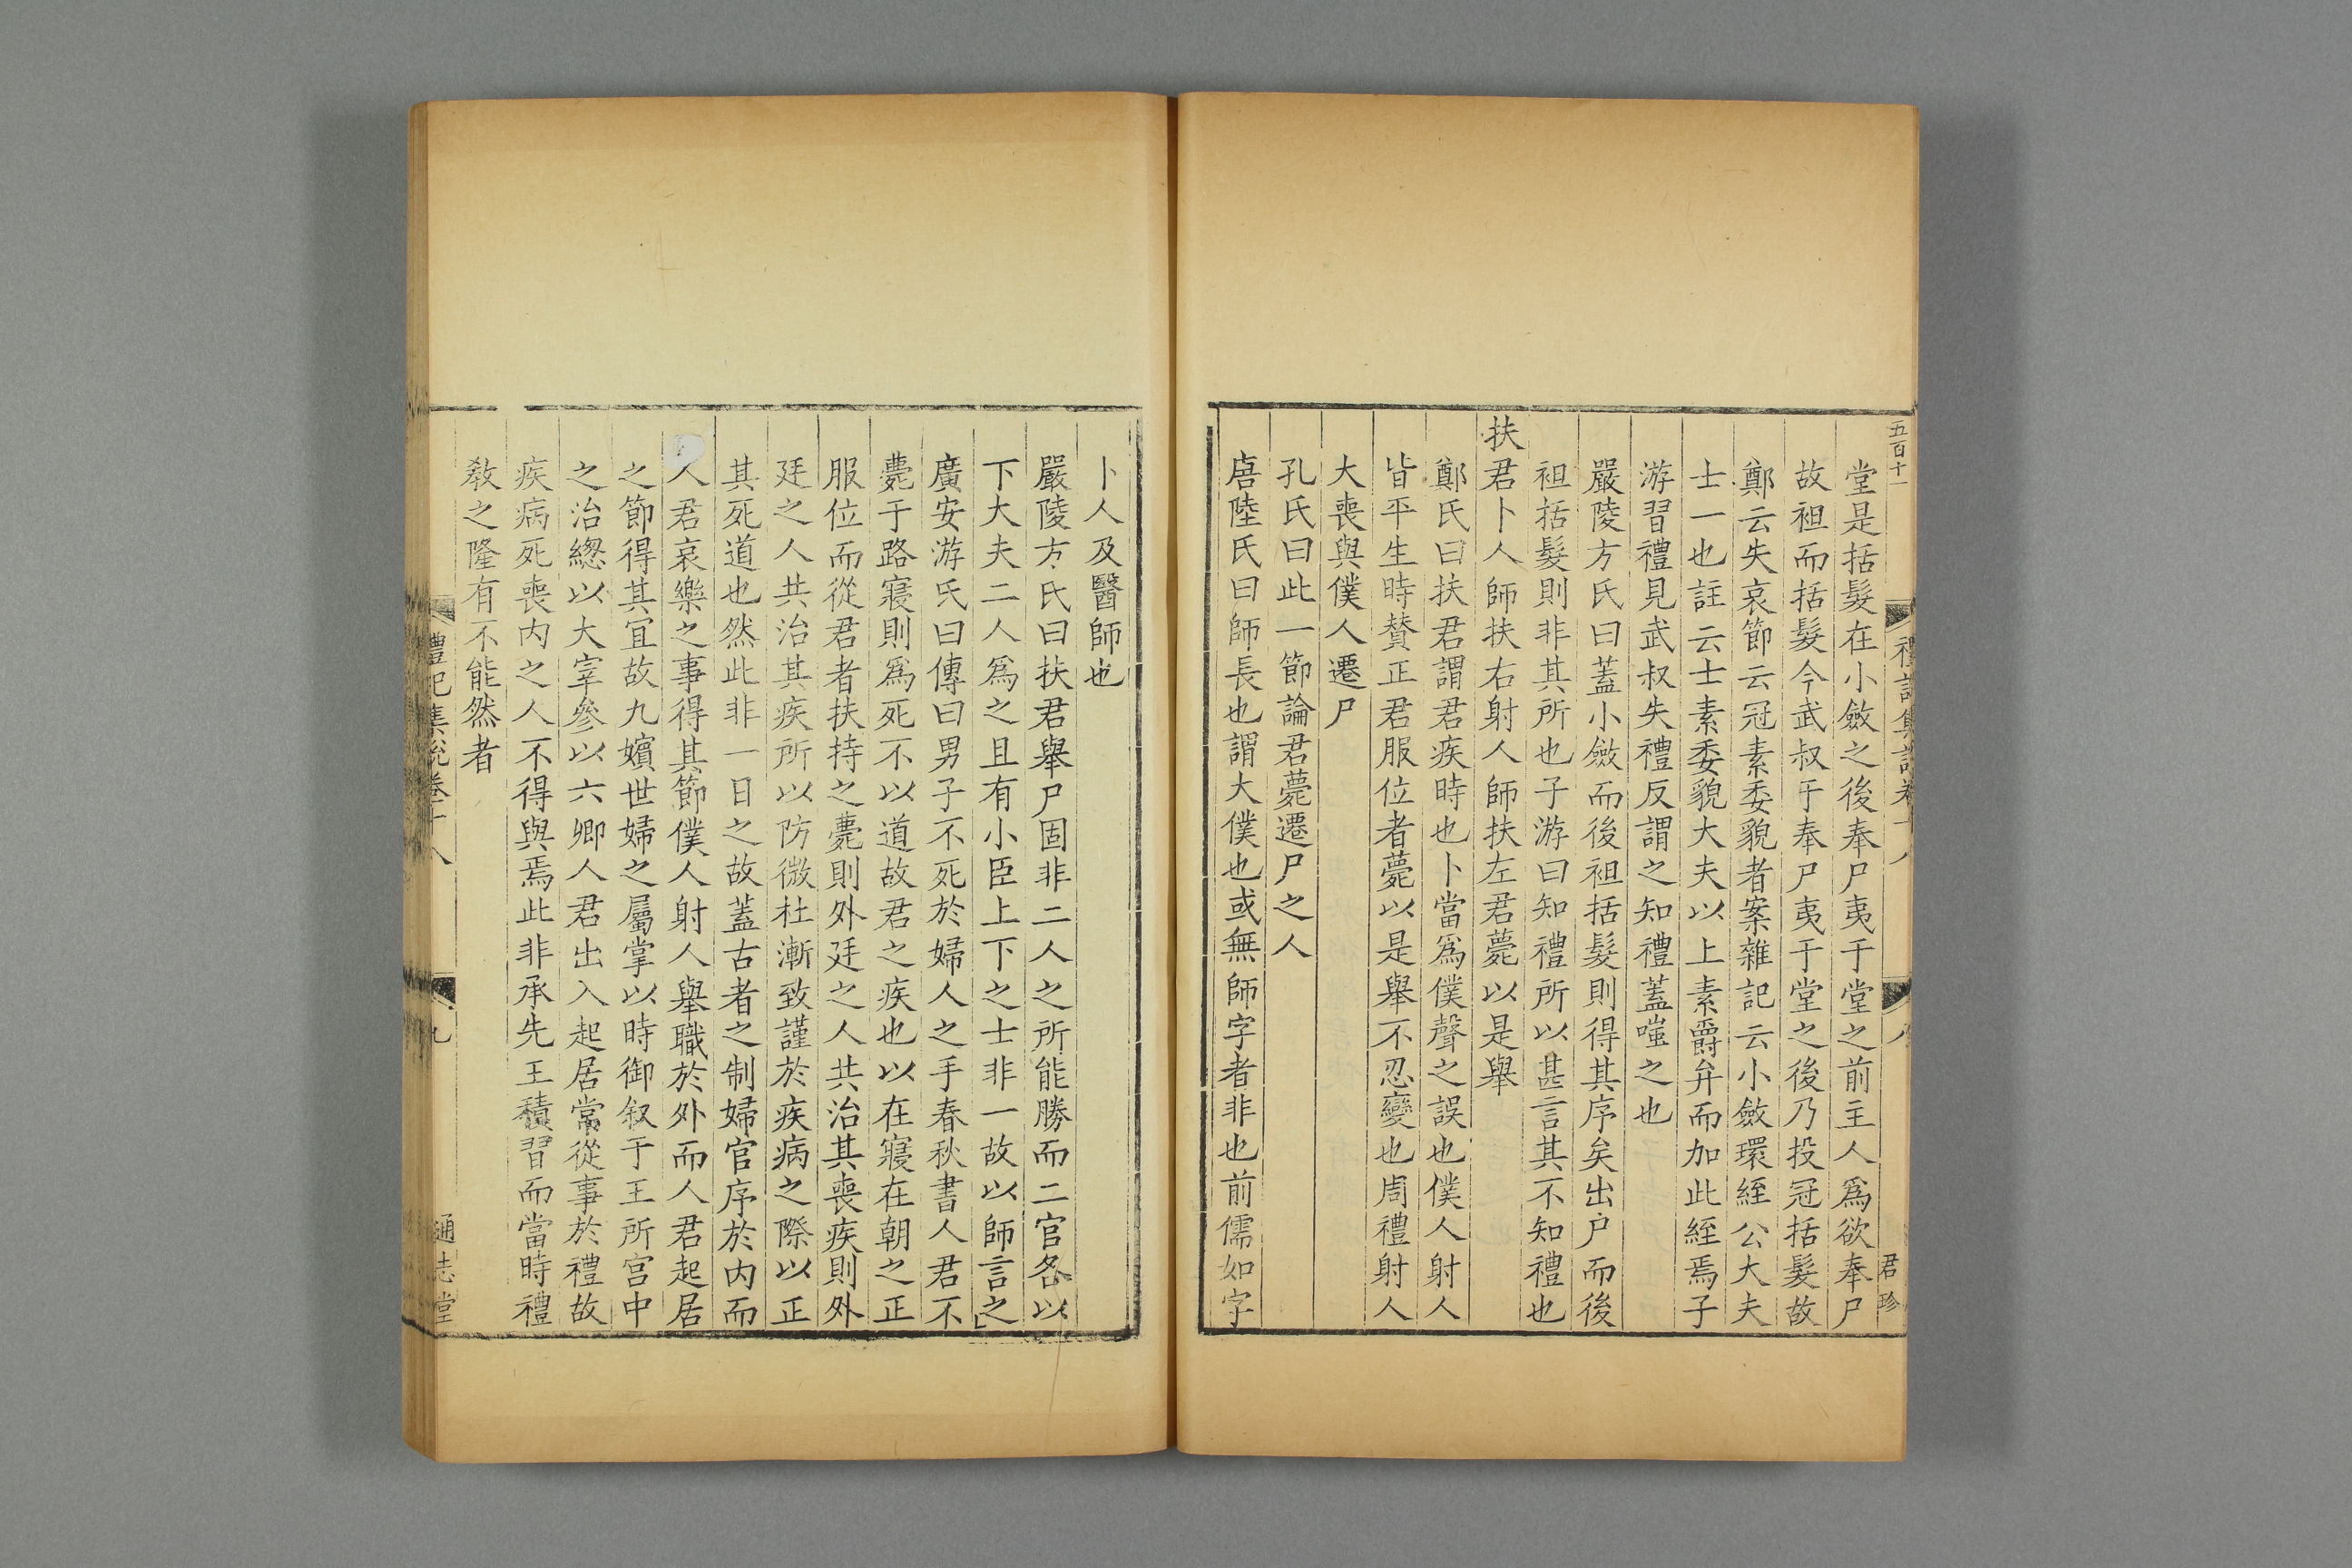 五百十一
禮記集說卷十八
八
君珍
堂是括髮在小斂之後奉尸夷于堂之前主人爲欲奉尸
故袒而括髮今武叔于奉尸夷于堂之後乃投冠括髮故
鄭云失哀節云冠素委貌者案雜記云小斂環絰公大夫
士一也註云士素委貌大夫以上素爵弁而加此絰焉子
游習禮見武叔失禮反謂之知禮蓋嗤之也
嚴陵方氏曰蓋小斂而後袒括髮則得其序矣出户而後
袒括髮則非其所也子游曰知禮所以甚言其不知禮也
扶君卜人師扶右射人師扶左君薨以是舉
鄭氏曰扶君謂君疾時也卜當爲僕聲之誤也僕人射人
皆平生時贊正君服位者薨以是舉不忍變也周禮射人
大喪與僕人遷尸
孔氏曰此一節論君薨遷尸之人
唐陸氏曰師長也謂大僕也或無師字者非也前儒如字
卜人及醫師也
嚴陵方氏曰扶君舉尸固非二人之所能勝而二官各以
下大夫二人爲之且有小臣上下之士非一故以師言之
廣安游氏曰傳曰男子不死於婦人之手春秋書人君不
薨于路寢則爲死不以道故君之疾也以在寢在朝之正
服位而從君者扶持之薨則外廷之人共治其喪疾則外
廷之人共治其疾所以防微杜漸致謹於疾病之際以正
其死道也然此非一日之故蓋古者之制婦官序於内而
人君哀樂之事得其節僕人射人舉職於外而人君起居
之節得其宜故九嬪世婦之屬掌以時御叙于王所宫中
之治緫以大宰參以六卿人君出入起居常從事於禮故
疾病死喪内之人不得與焉此非承先王積習而當時禮
敎之隆有不能然者
禮記集說卷十八
九
通志堂